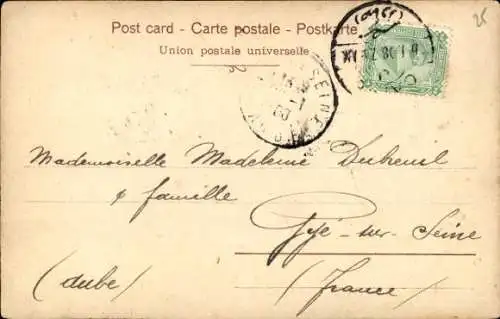 Post card - Carte postale - Postkarte
Union postale universelle
25
Mademoiselle Madeleine Dubreuil
& famille
Gyé-sur-Seine
(Aube) (France)